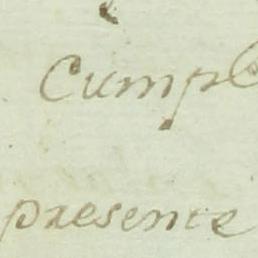 Cumpl
presente